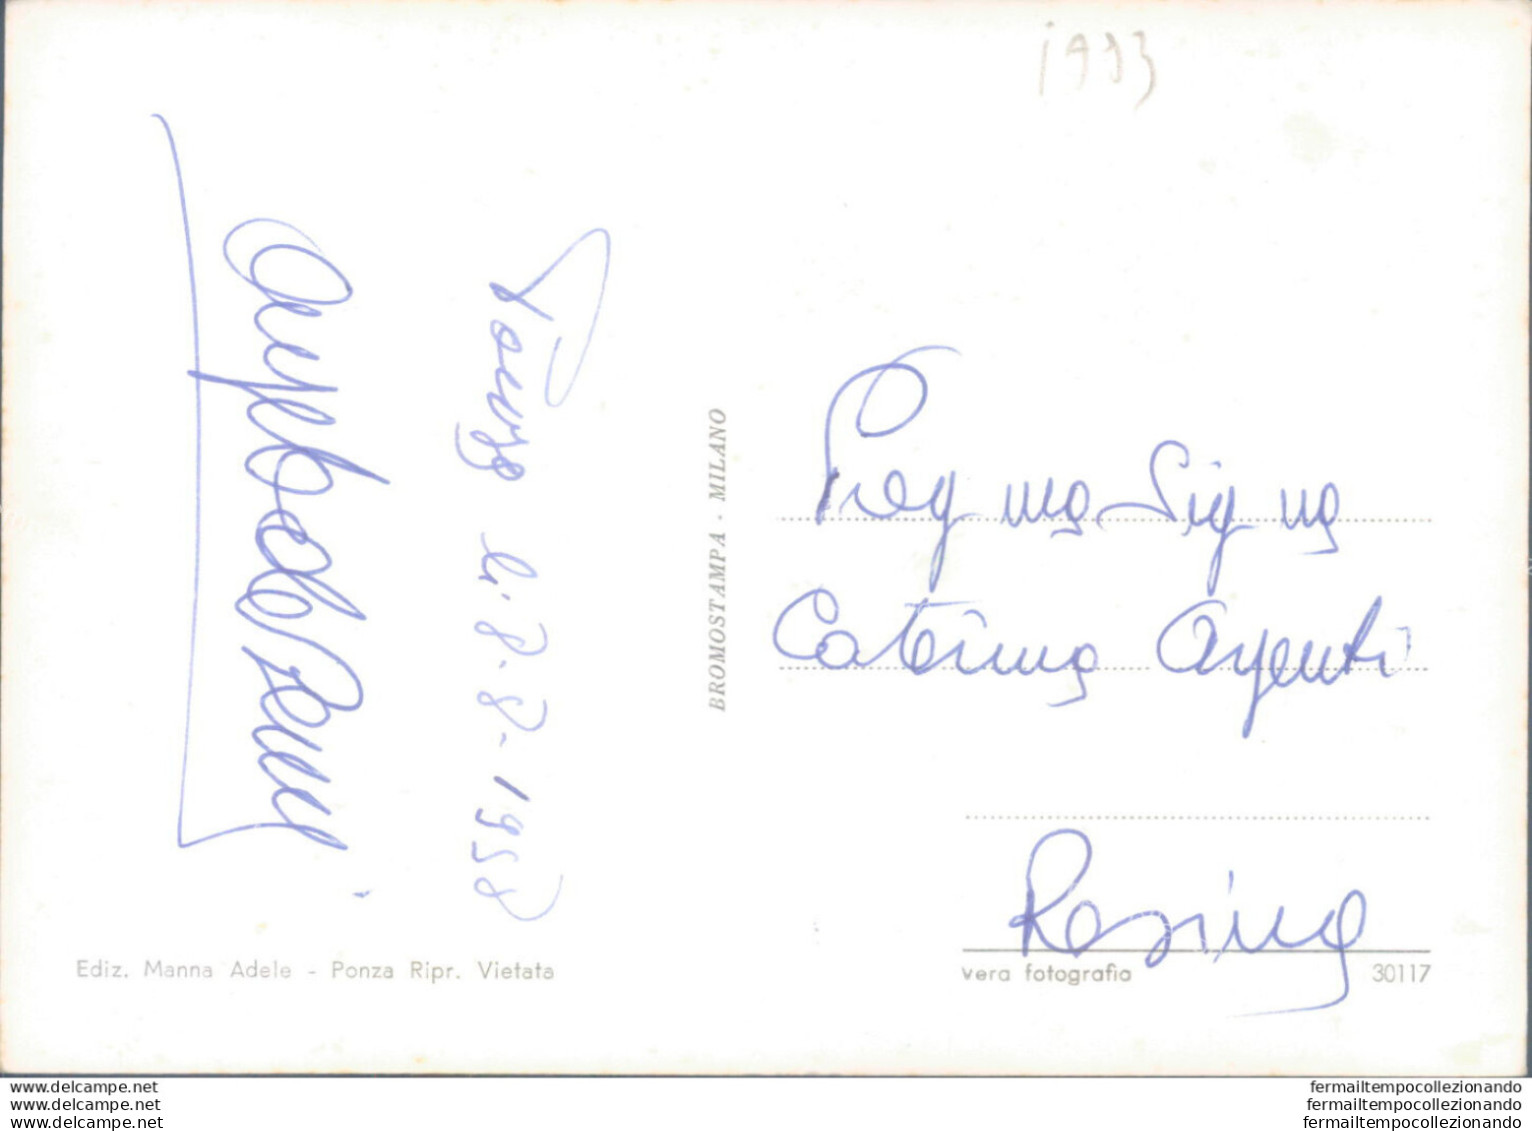 1993
Ponza li. 8-8-1958
BROMOSTAMPA - MILANO
Preg ma Sig na
Caterina Argenti
Resina
Ediz. Manna Adele - Ponza Ripr. Vietata
vera fotografia
30117
delcampe.net
delcampe.net
delcampe.net
fermailtempocollezionando
fermailtempocollezionando
fermailtempocollezionando